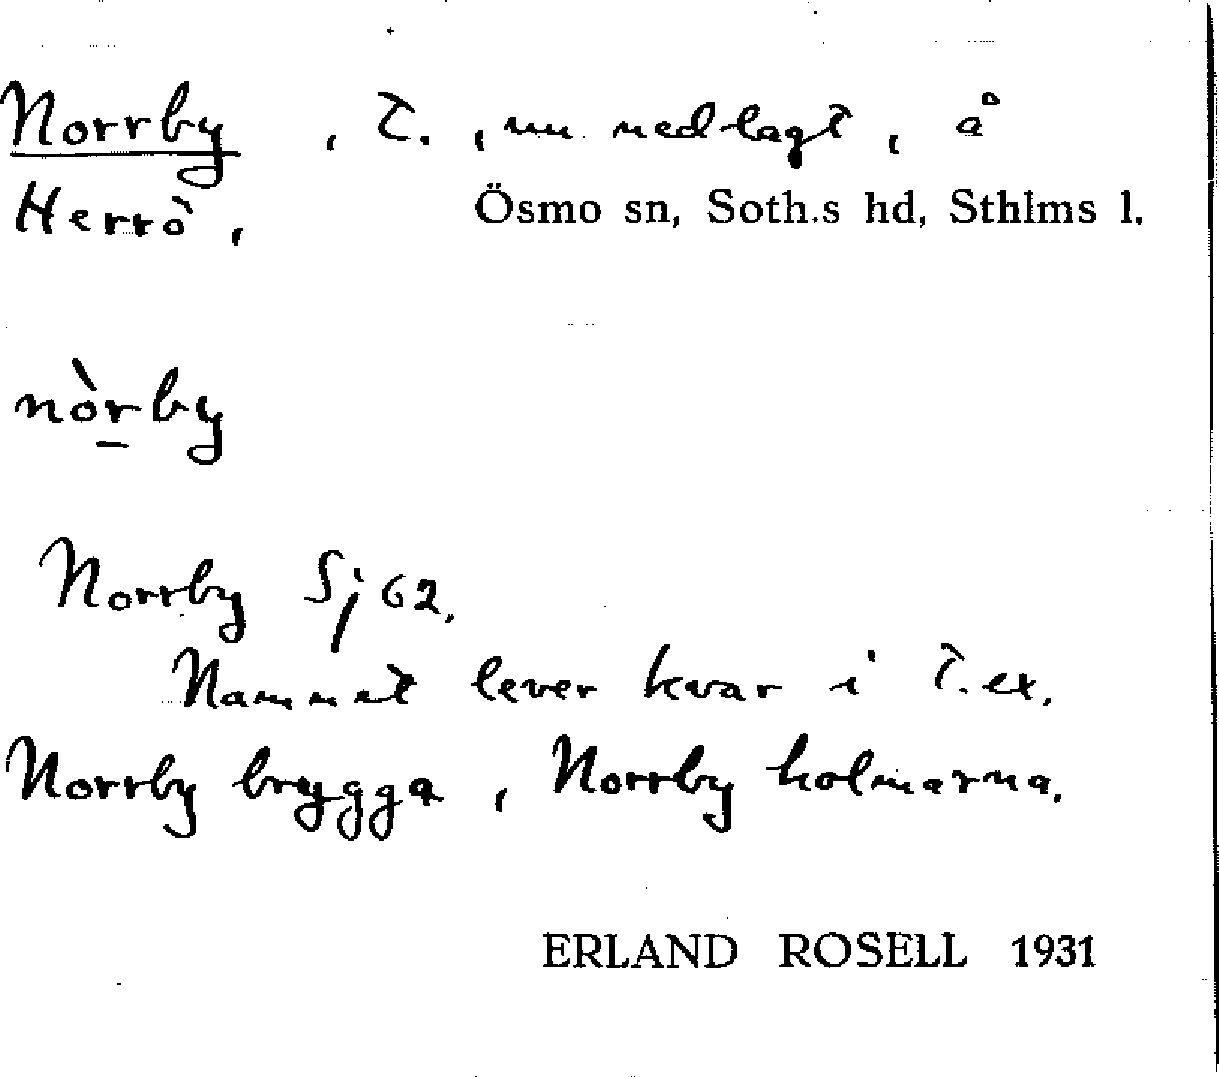 Norrby , t. , nu nedlagt , å
Herrö , Ösmo sn, Soth.s hd, Sthlms l.
nòrby
Norrby Sj 62.
Namnet lever kvar i t.ex.
Norrby brygga , Norrby holmarna.
ERLAND ROSELL 1931